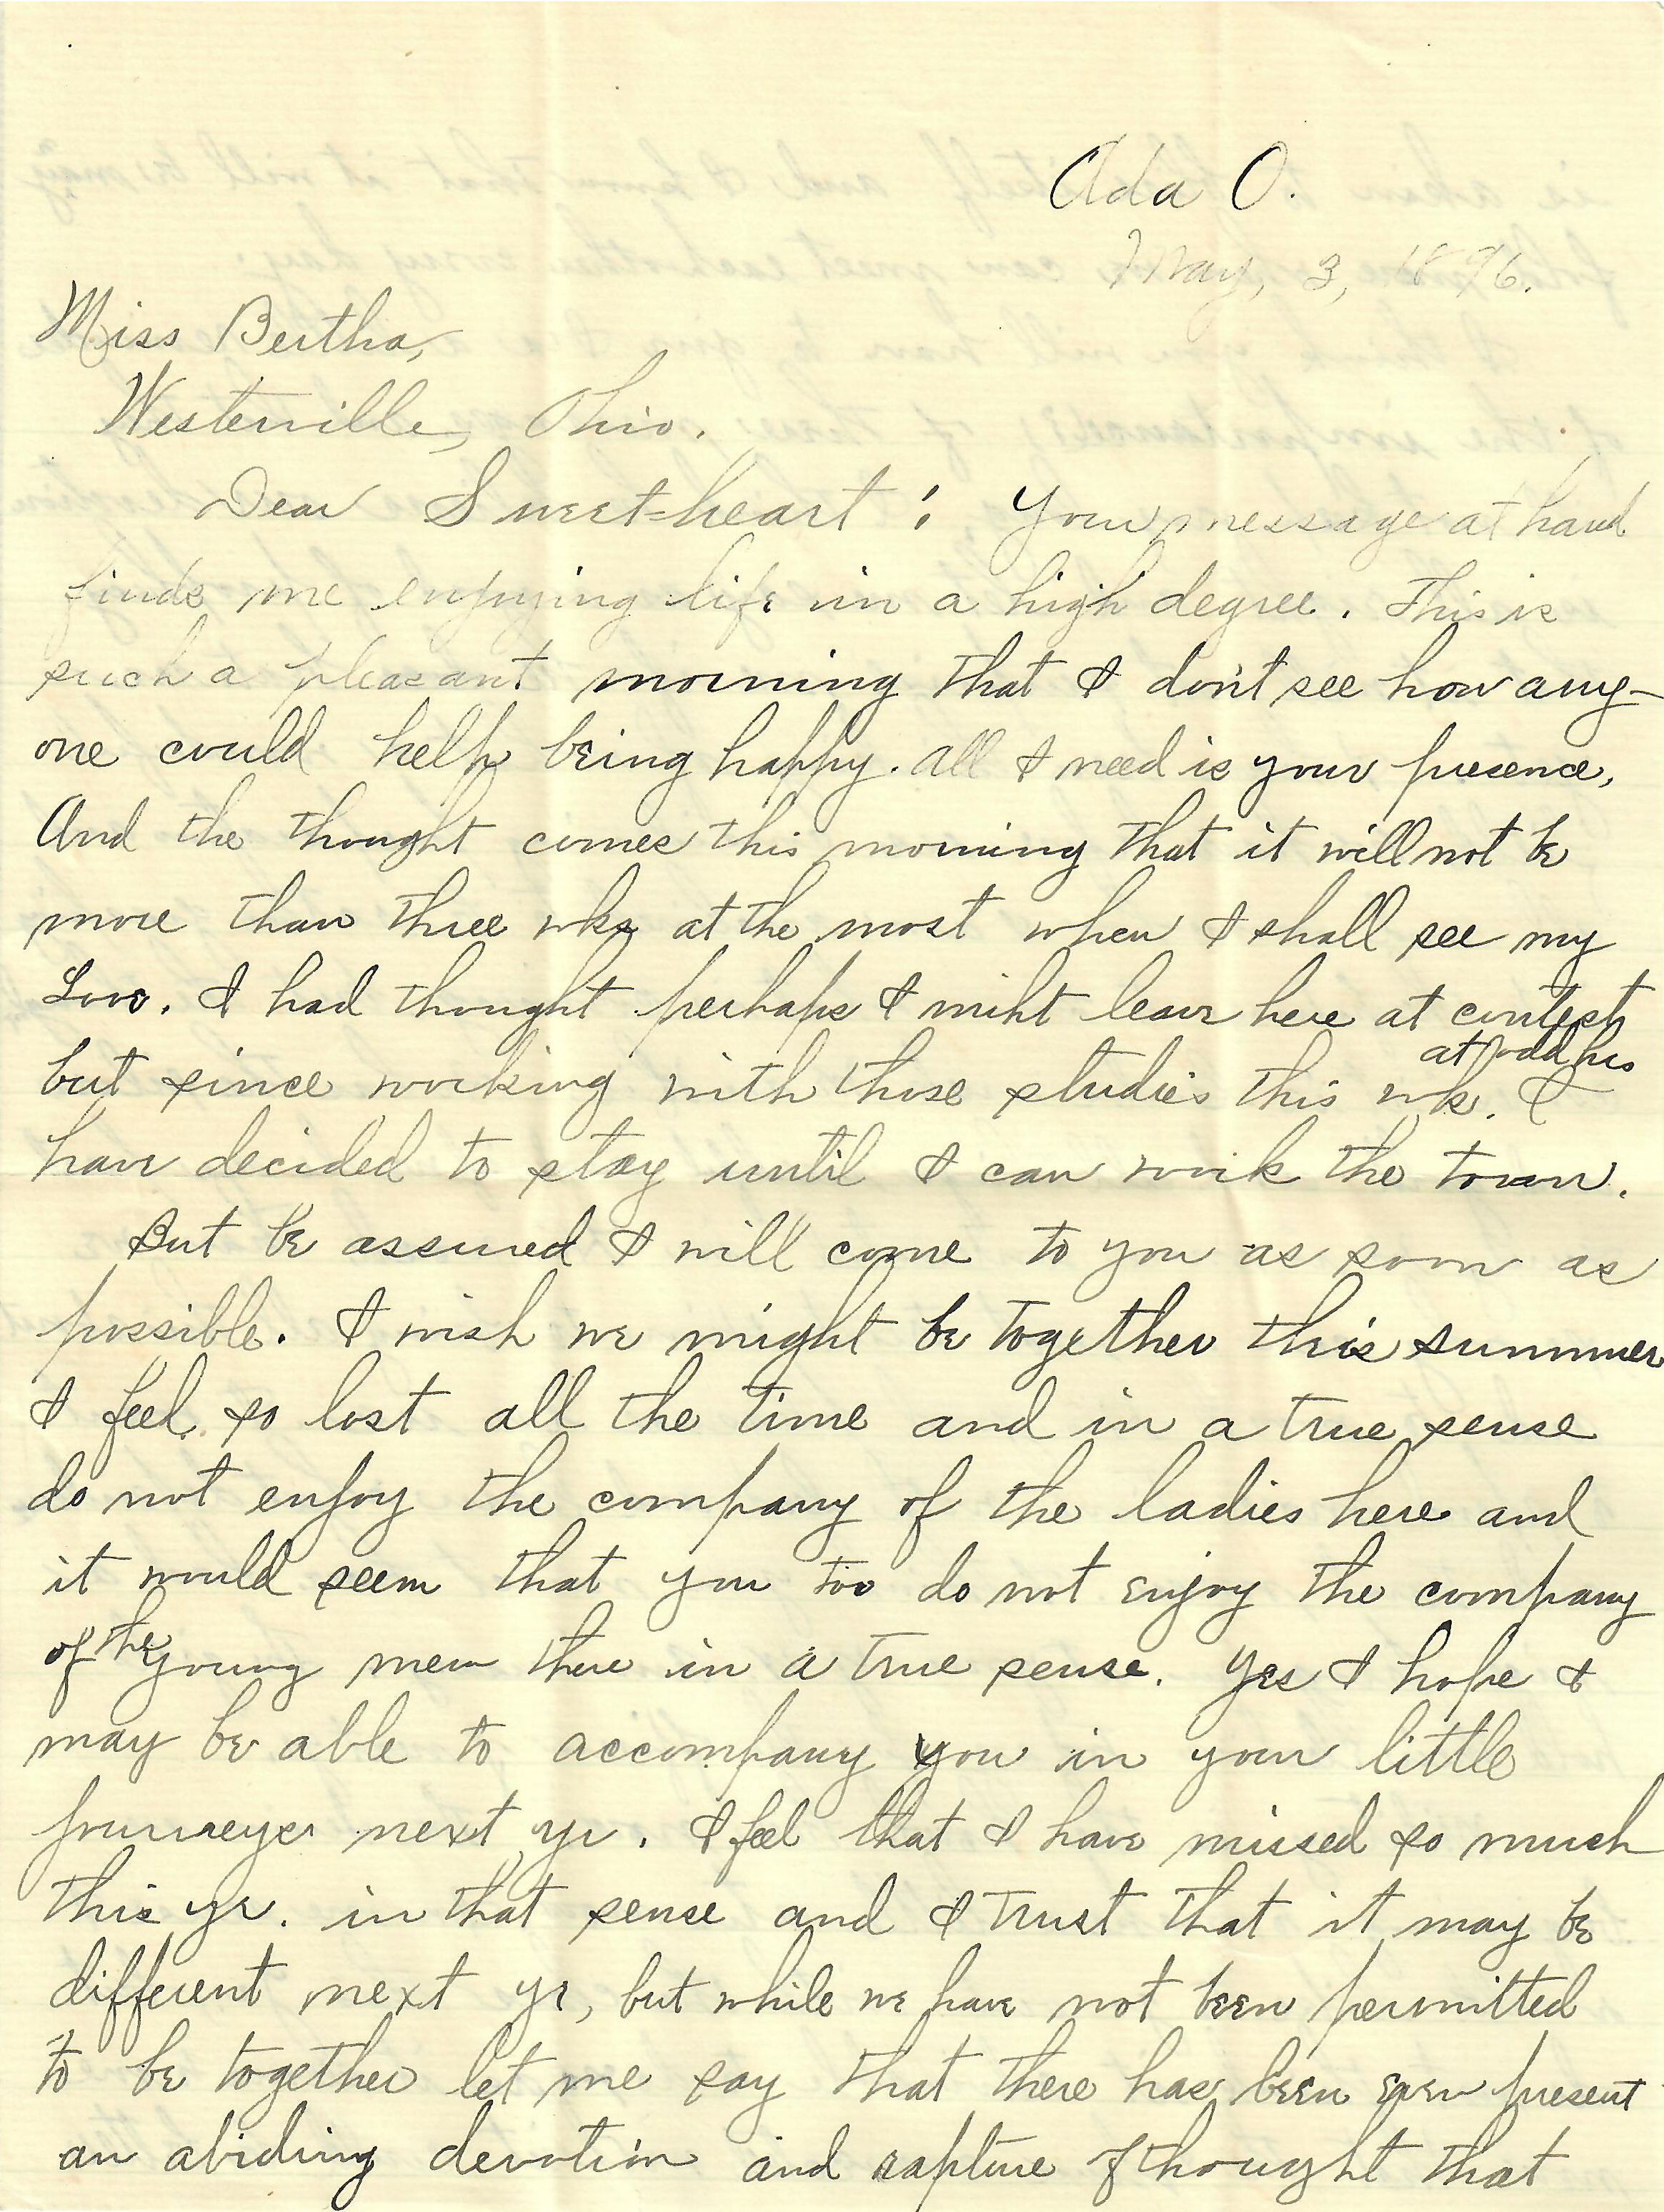 Ada O.
May, 3, 1896.
Miss Bertha,
Westerville, Ohio.
Dear Sweet-heart: Your message at hand
finds me enjoying life in a high degree. This is
such a pleasant morning that I don't see how any-
one could help being happy. All I need is your presence,
And the thought comes this morning that it will not be
more than three wks at the most when I shall see my
Love. I had thought perhaps I miht leave here at contest
at
but since working with those studies this wk. I
have decided to stay until I can work the town.
But be assured I will come to you as soon as
possible. I wish we might be together this summer
I feel so lost all the time and in a true sense
do not enjoy the company of the ladies here and
it would seem that you too do not enjoy the company
of the young men there in a true sense. Yes I hope I
may be able to accompany you in your little
journeyes next yr. I feel that I have missed so much
this yr. in that sense and I trust that it may be
different next yr, but while we have not been permitted
to be together let me say that there has been ever present
an abiding devotion and rapture of thought that